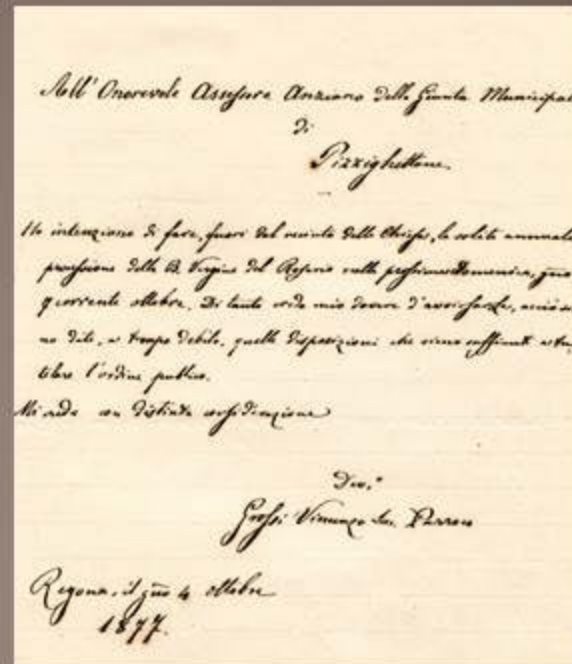 All' Onorevole Assessore Anziano della Giunta Municipal
di
Pizzighettone.
Ho intenzione di fare, fuori del recinto della Chiesa, la solita annuale
processione della B. Vergine del Rosario nella prossima Domenica, gino
7 corrente ottobre. Di tanto credo mio dovere d'avvisarla, acciò
no date, a tempo debito, quelle disposizioni che sieno sufficienti a tu
telare l'ordine pubblico.
Mi creda con distinta considerazione
Dev.º
Grossi Vincenzo Parroco
Regona, il gno 4 ottobre
1877.